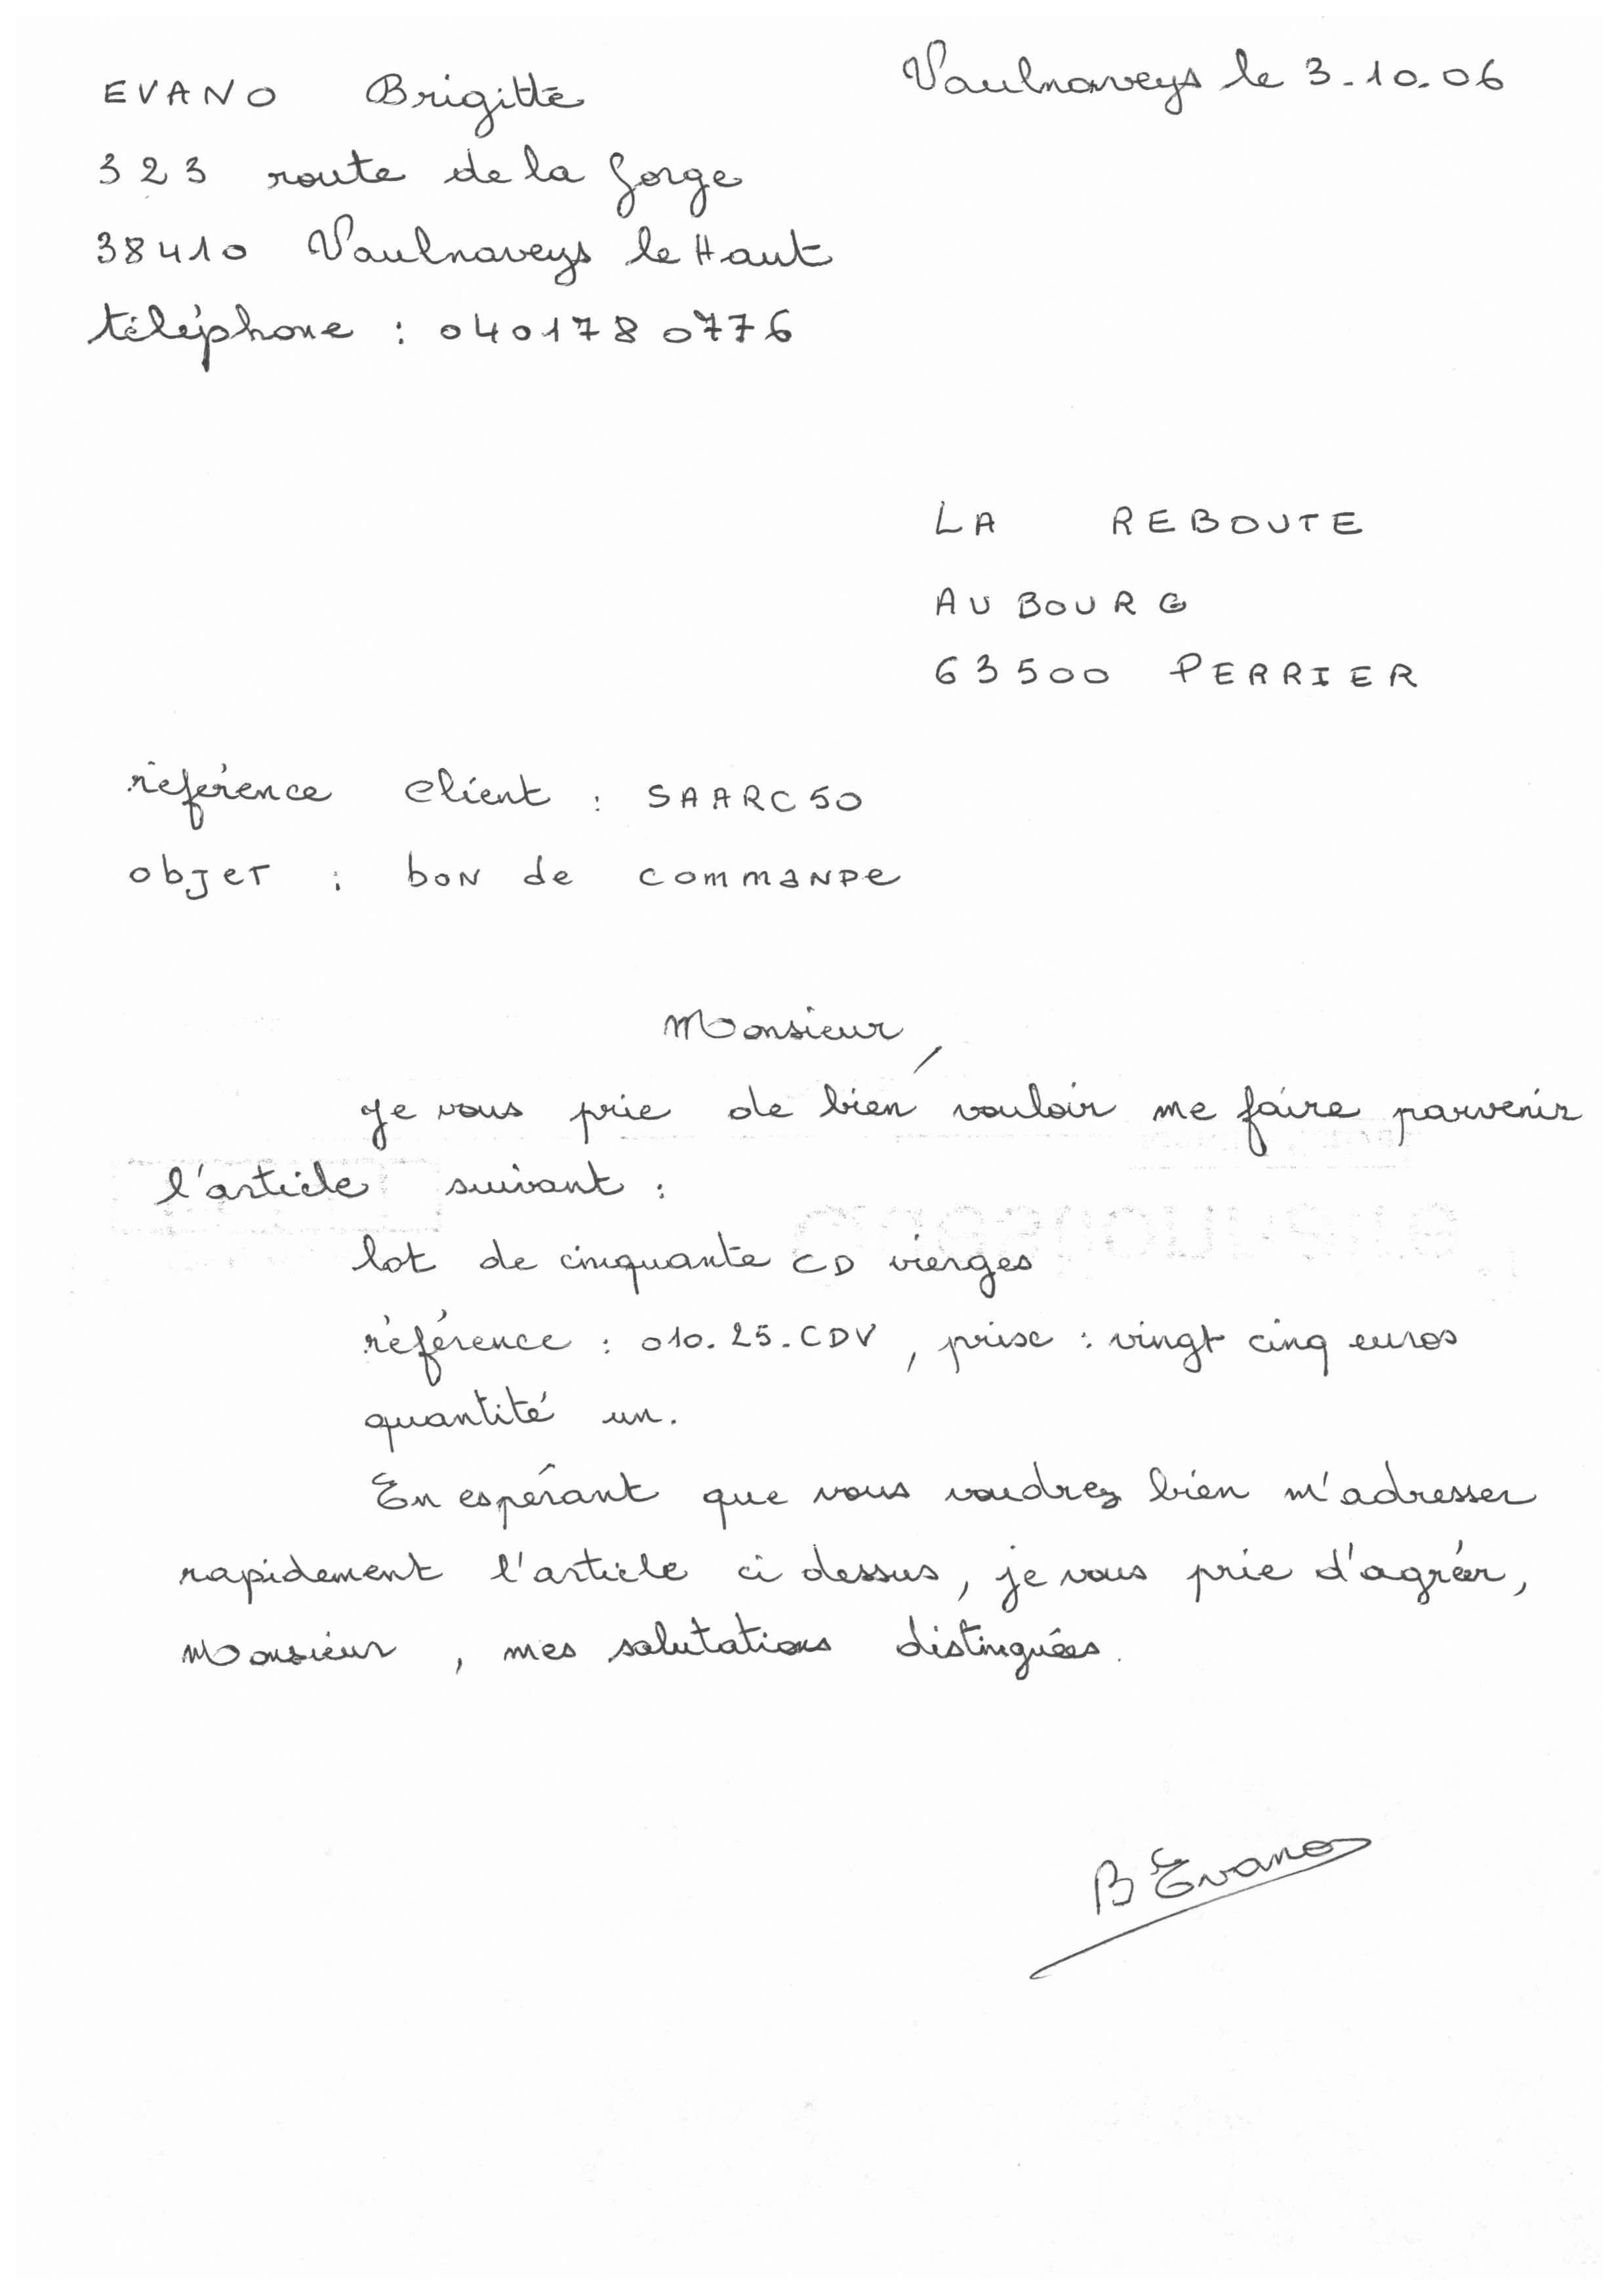 EVANO Brigitte
Vaulnaveys le 3.10.06
323 route de la Gorge
38410 Vaulnaveys le Haut
téléphone : 0401780776
LA REBOUTE
AU BOURG
63500 PERRIER
référence client : SAARC50
objet : bon de commande
Monsieur,
je vous prie de bien vouloir me faire parvenir
l'article suivant :
lot de cinquante CD vierges
référence : 010.25.CDV, prix : vingt cinq euros
quantité un.
En espérant que vous voudrez bien m'adresser
rapidement l'article ci dessus, je vous prie d'agréer,
Monsieur, mes salutations distinguées.
B Evano